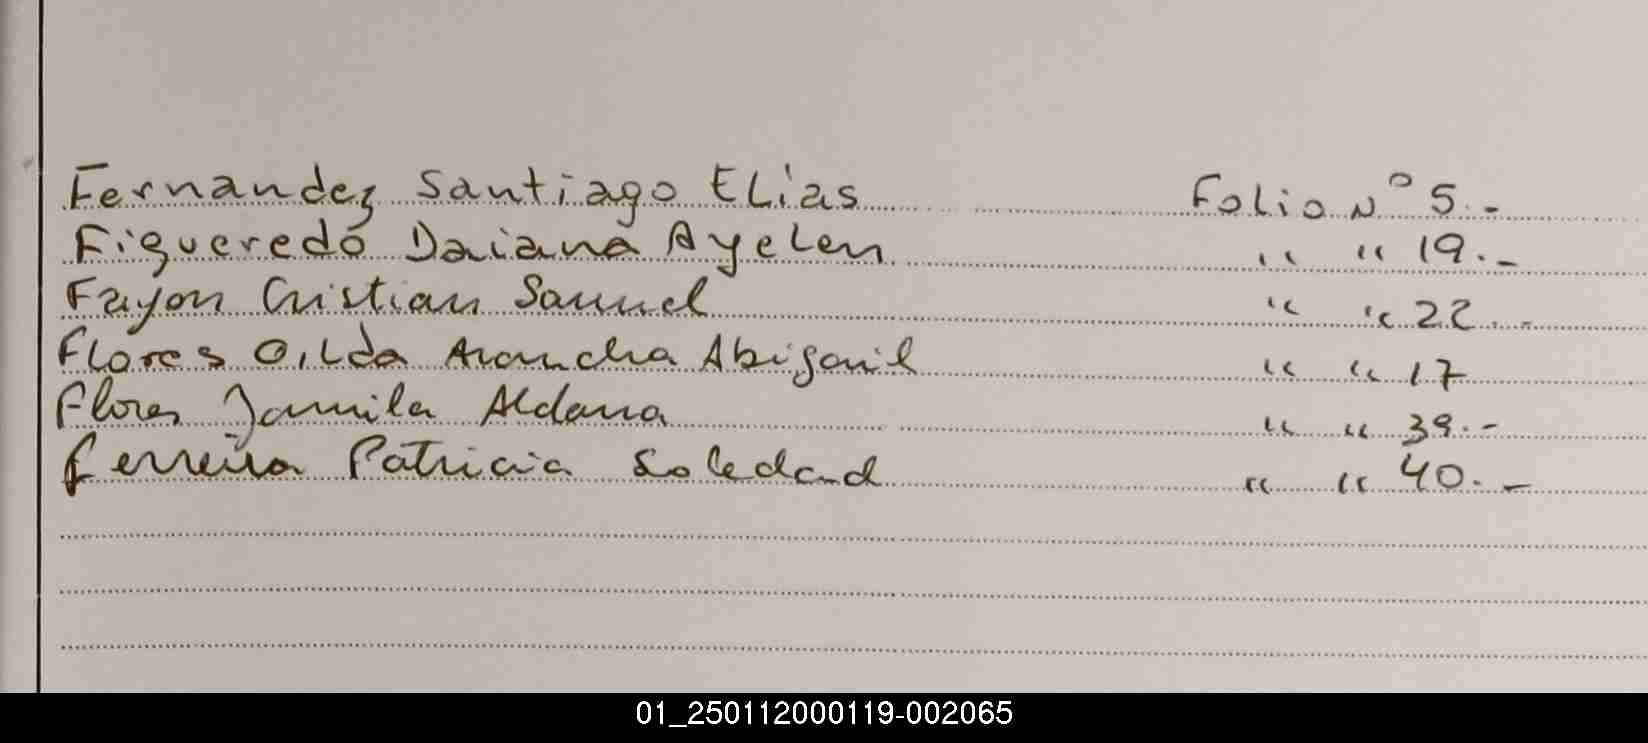 Fernandez Santiago Elias Folio Nº 5.-
Figueredo Daiana Ayelen " " 19.-
Fayon Cristian Samuel " " 22.-
Flores Gilda Arancha Abigail " " 17
Flores Jamila Aldana " " 39.-
Ferreira Patricia Soledad " " 40.-
01_250112000119-002065